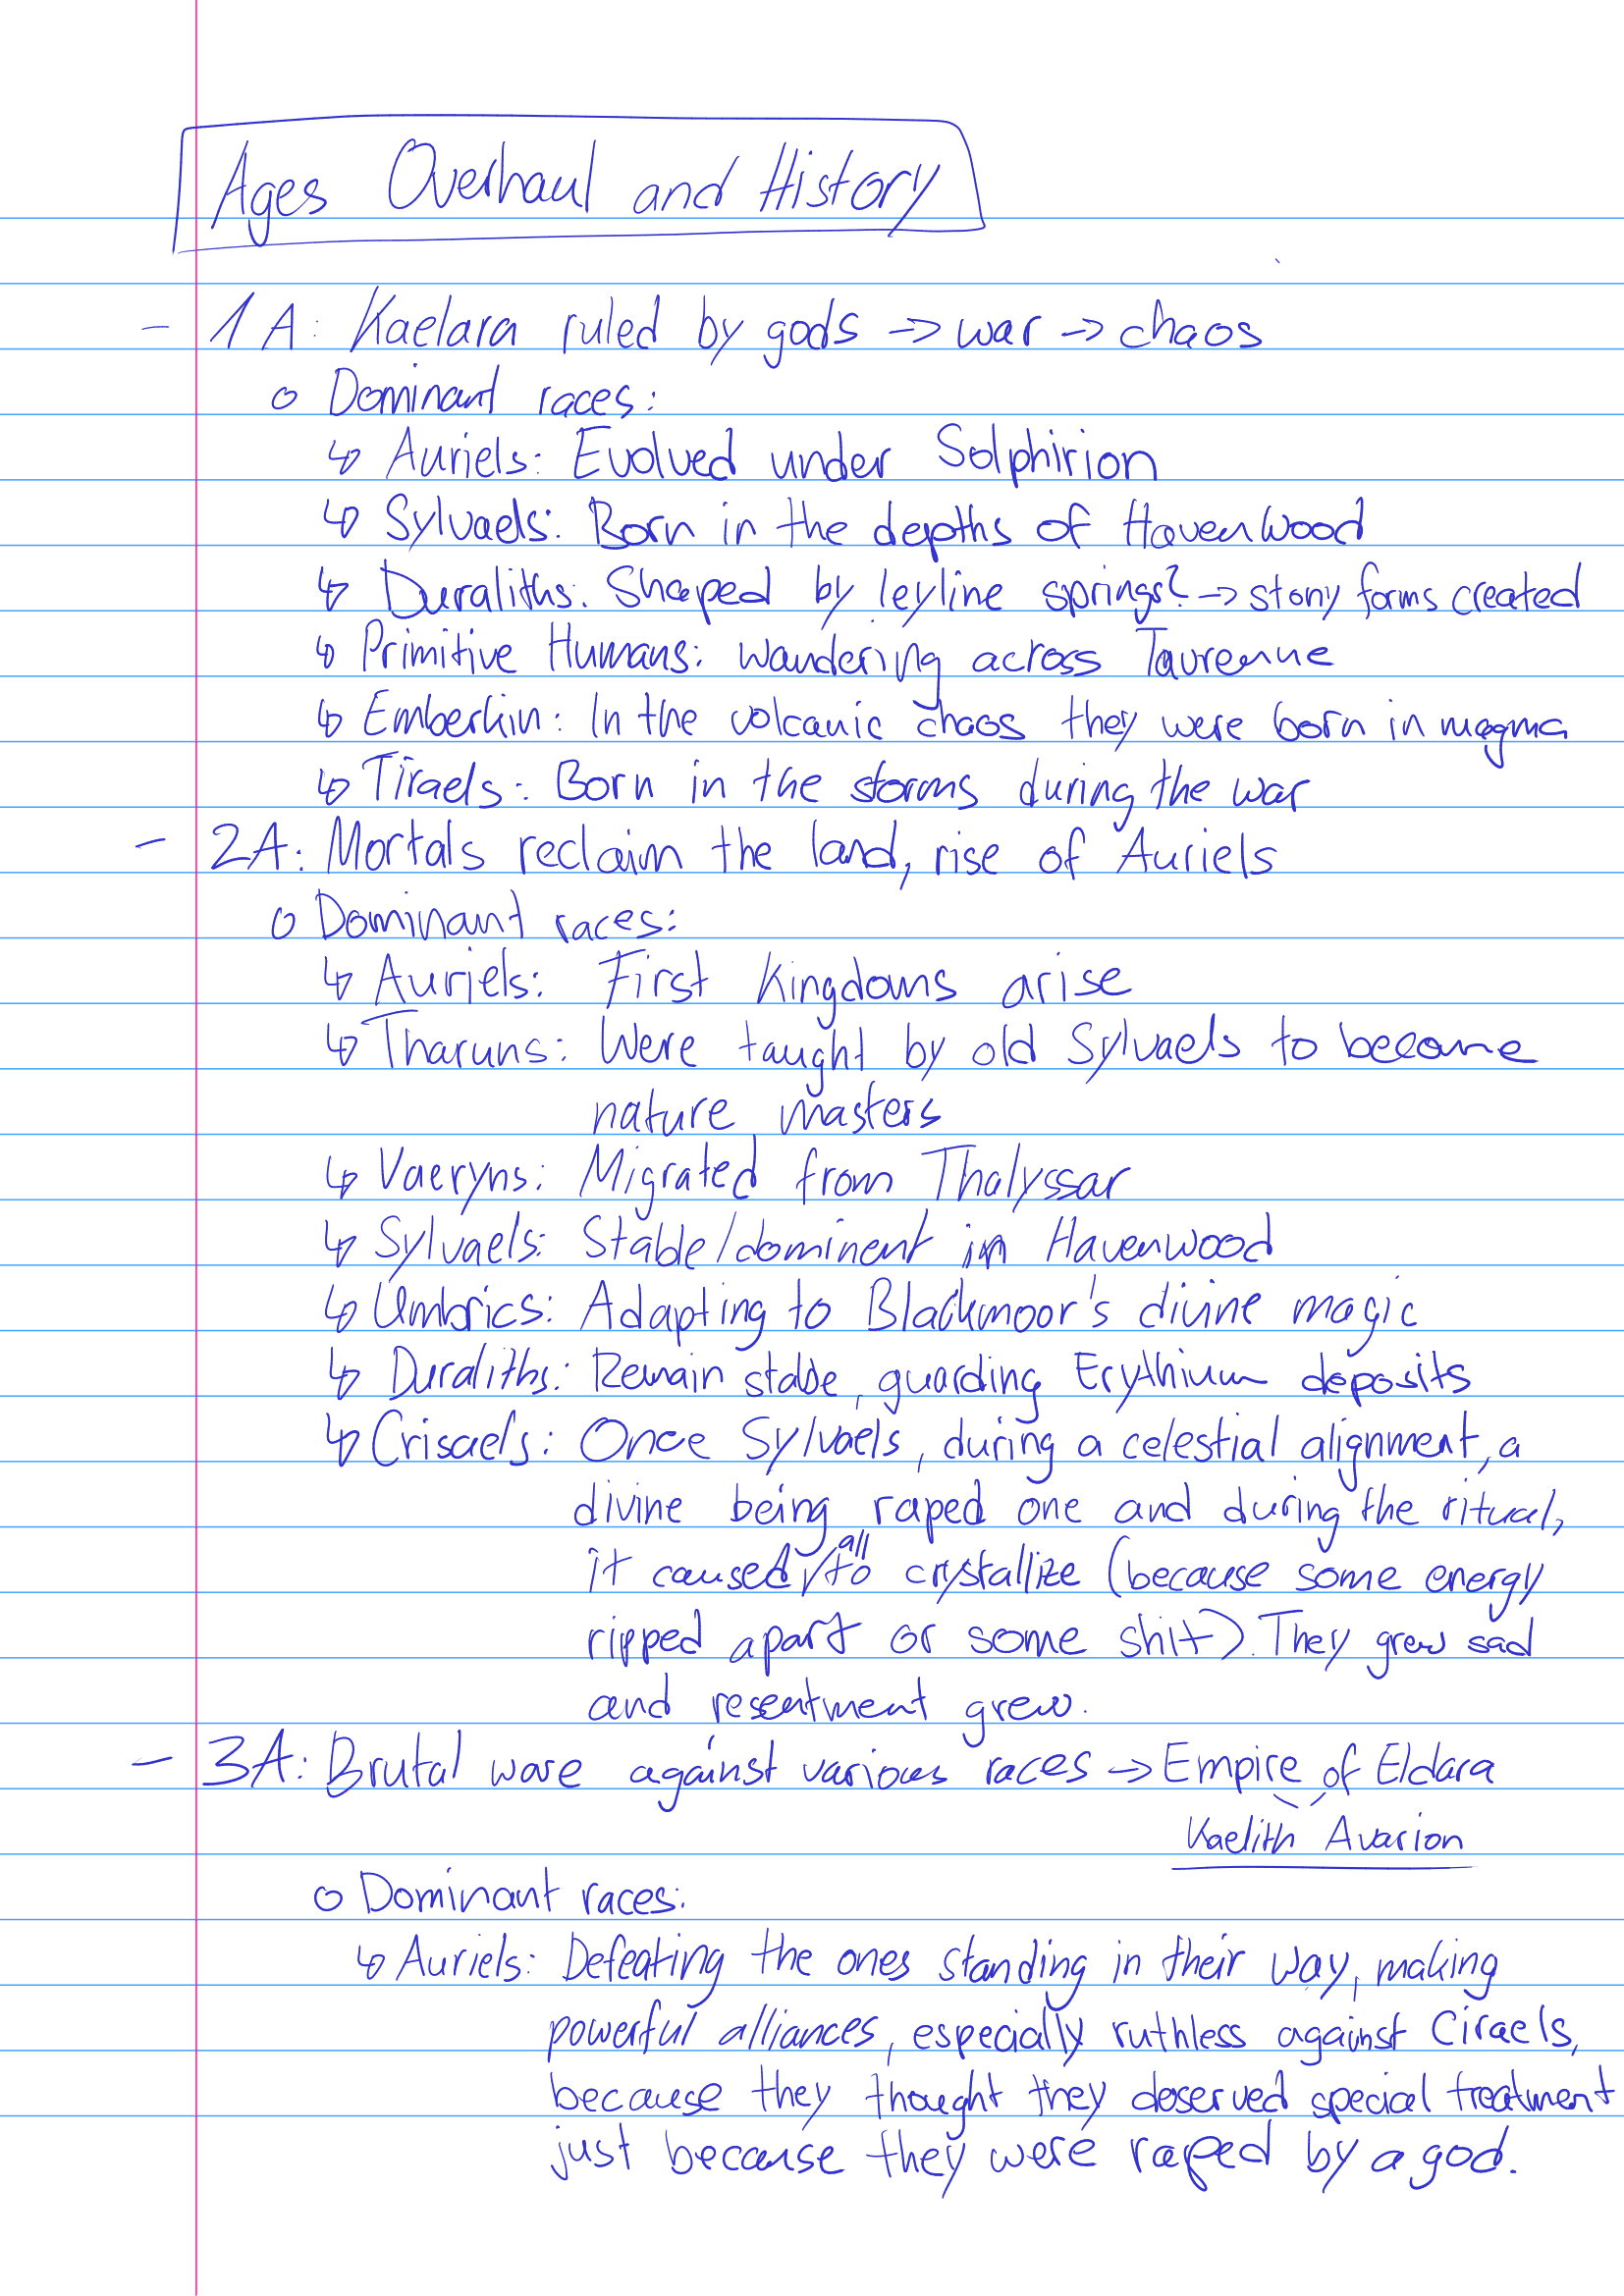 Ages Overhaul and History
- 1A: Kaelara ruled by gods → war → chaos
o Dominant races:
↳ Auriels: Evolved under Solphirion
↳ Sylvaels: Born in the depths of Havenwood
↳ Duraliths: Shaped by leyline springs? → stony forms created
↳ Primitive Humans: wandering across Taurenne
↳ Emberkin: In the volcanic chaos they were born in magma
↳ Tiraels: Born in the storms during the war
- 2A: Mortals reclaim the land, rise of Auriels
o Dominant races:
↳ Auriels: First kingdoms arise
↳ Tharuns: Were taught by old Sylvaels to become
nature masters
↳ Vaeryns: Migrated from Thalyssar
↳ Sylvaels: Stable/dominent in Havenwood
↳ Umbrics: Adapting to Blackmoor's divine magic
↳ Duraliths: Remain stable, guarding Erythium deposits
↳ Crisaels: Once Sylvaels, during a celestial alignment, a
divine being raped one and during the ritual,
it caused all to crystallize (because some energy
ripped apart or some shit). They grew sad
and resentment grew.
- 3A: Brutal ware against various races → Empire of Eldara
Kaelith Avarion
o Dominant races:
↳ Auriels: Defeating the ones standing in their way, making
powerful alliances, especially ruthless against Ciraels,
because they thought they deserved special treatment
just because they were raped by a god.